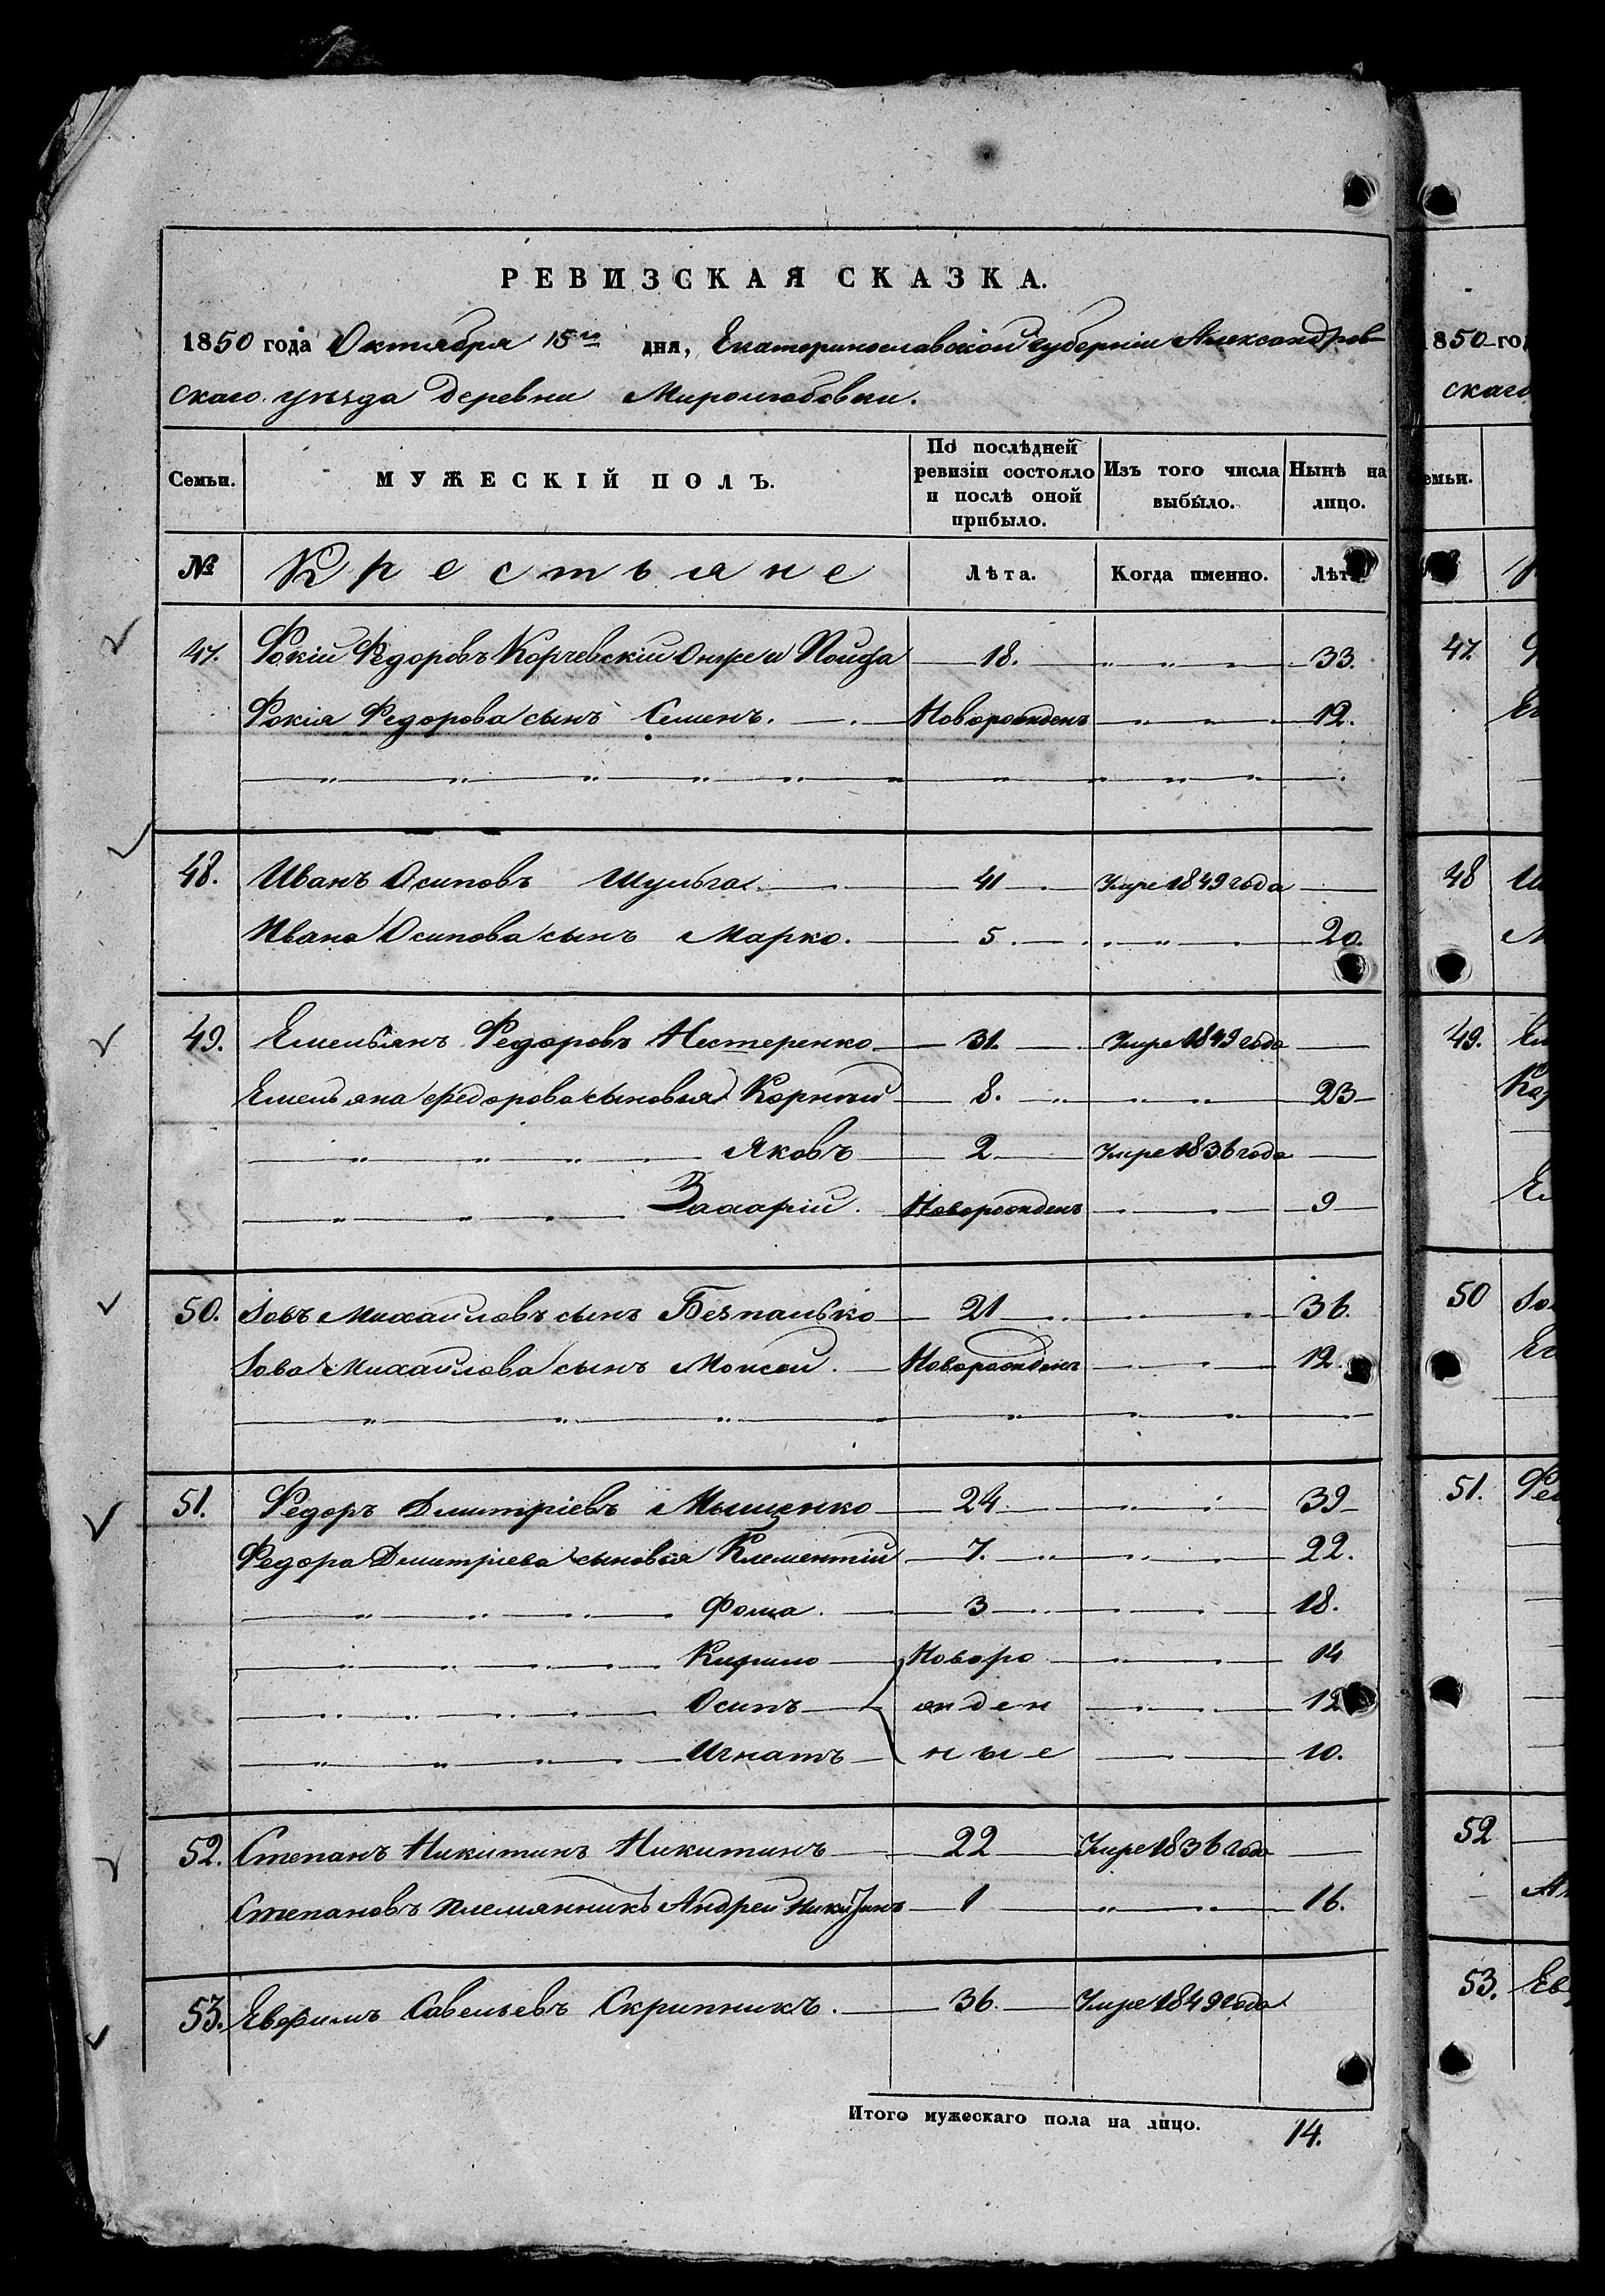 РЕВИЗСКАЯ СКАЗКА.
1850 года Октября 15го дня, Екатеринославской губерніи Александров-
скаго уѣзда Деревни Миролюбовки.
Семьи. МУЖЕСКІЙ ПОЛЪ. По послѣдней ревизіи состояло и послѣ оной прибыло. Изъ того числа выбыло. Нынѣ на лицо.
№ Крестьяне Лѣта. Когда именно. Лѣта
47. Фокій Федоровъ Корчевскій онже и 18. 33.
Фокія Федорова сынъ Семенъ. Новорожденъ 12.
48. Иванъ Осиповъ Шульга 41 Умре 1849 года
Ивана Осипова сынъ Марко. 5 20.
49. Емельянъ Федоровъ Нестеренко 31. Умре 1849 года
Емельяна Федорова сыновья Корнѣй 8. 23
Яковъ 2 Умре 1836 года
Захарій. Новорожденъ 9
50. Іовъ Михайловъ сынъ Безпалько 21 36.
Іова Михайлова сынъ Моисей. Новорожденъ 12
51. Федоръ Дмитріевъ Мышенко 24 39
Федора Дмитріева сыновья Клементій 7. 22.
Фома. 3 18.
Кирило Новоро 14
Осипъ жден 12
Игнатъ ные 10.
52. Степанъ Никитинъ Никитинъ 22 Умре 1836 года
Степановъ племянникъ Андрей Никитинъ 1 16.
53. Евфимъ Савельевъ Скрипникъ. 36. Умре 1849 года
Итого мужескаго пола на лицо. 14.
1850 го
скаго
47.
48
49.
50
51.
52
53.